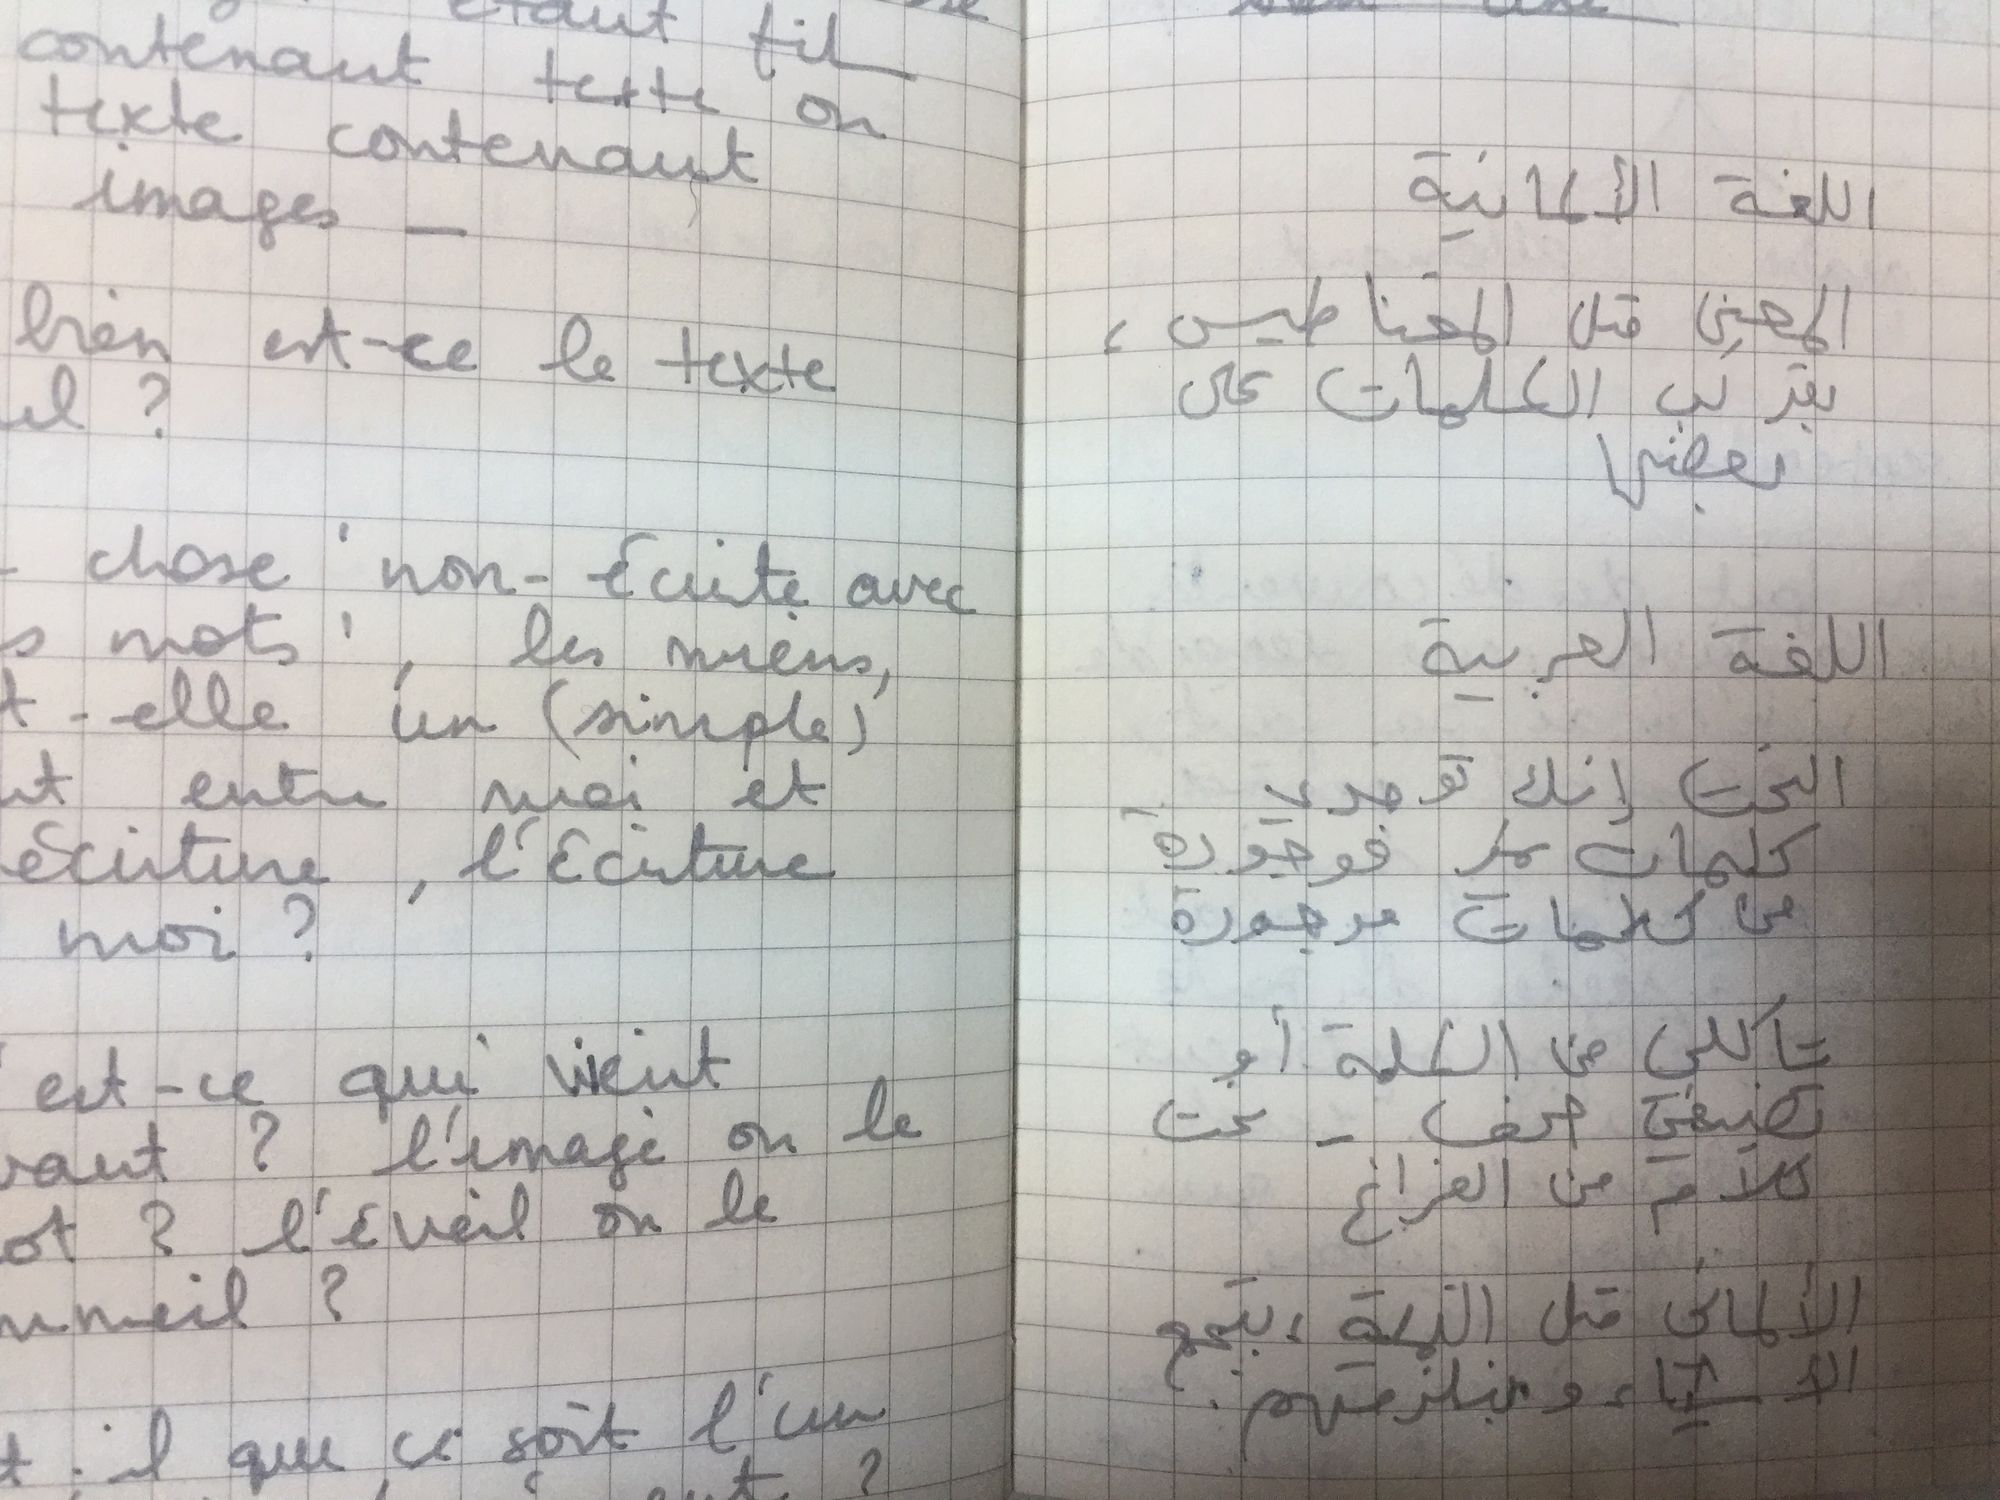 étant fil
contenant texte ou
texte contenant
images —
bien est-ce le texte
?
chose 'non-Écrite avec
mots', les miens,
-elle un (simple)
entre moi et
écriture, l'Écriture
moi ?
est-ce qui vient
? l'image ou le
? l'éveil ou le
?
il que ce soit l'un
?
اللغة الألمانية
المعنى متل المغناطيس،
بقرّب الكلمات على
بعضها
اللغة العربية
النحت إنك توجدي
كلمات موجودة
من كلمات موجودة
تاكلي من الكلمة أو
تضيفي حرف - نحت
كلام من الفراغ
الألماني متل ، بتجمع
الأشياء و